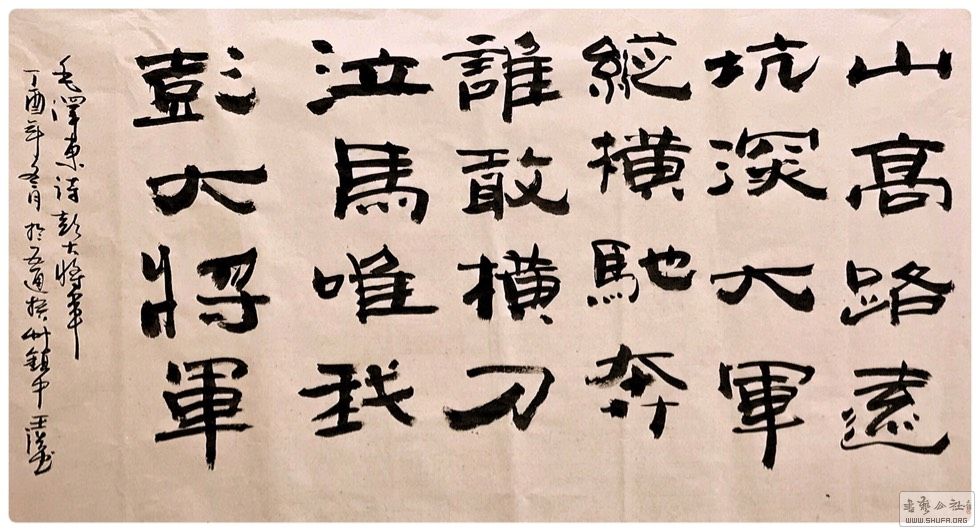 山高路遠
坑深大軍
縱橫馳奔
誰敢橫刀
泣馬唯我
彭大將軍
毛澤東詩彭大將軍
丁酉年冬月於五通橋
書藝公社
WWW.SHUFA.ORG